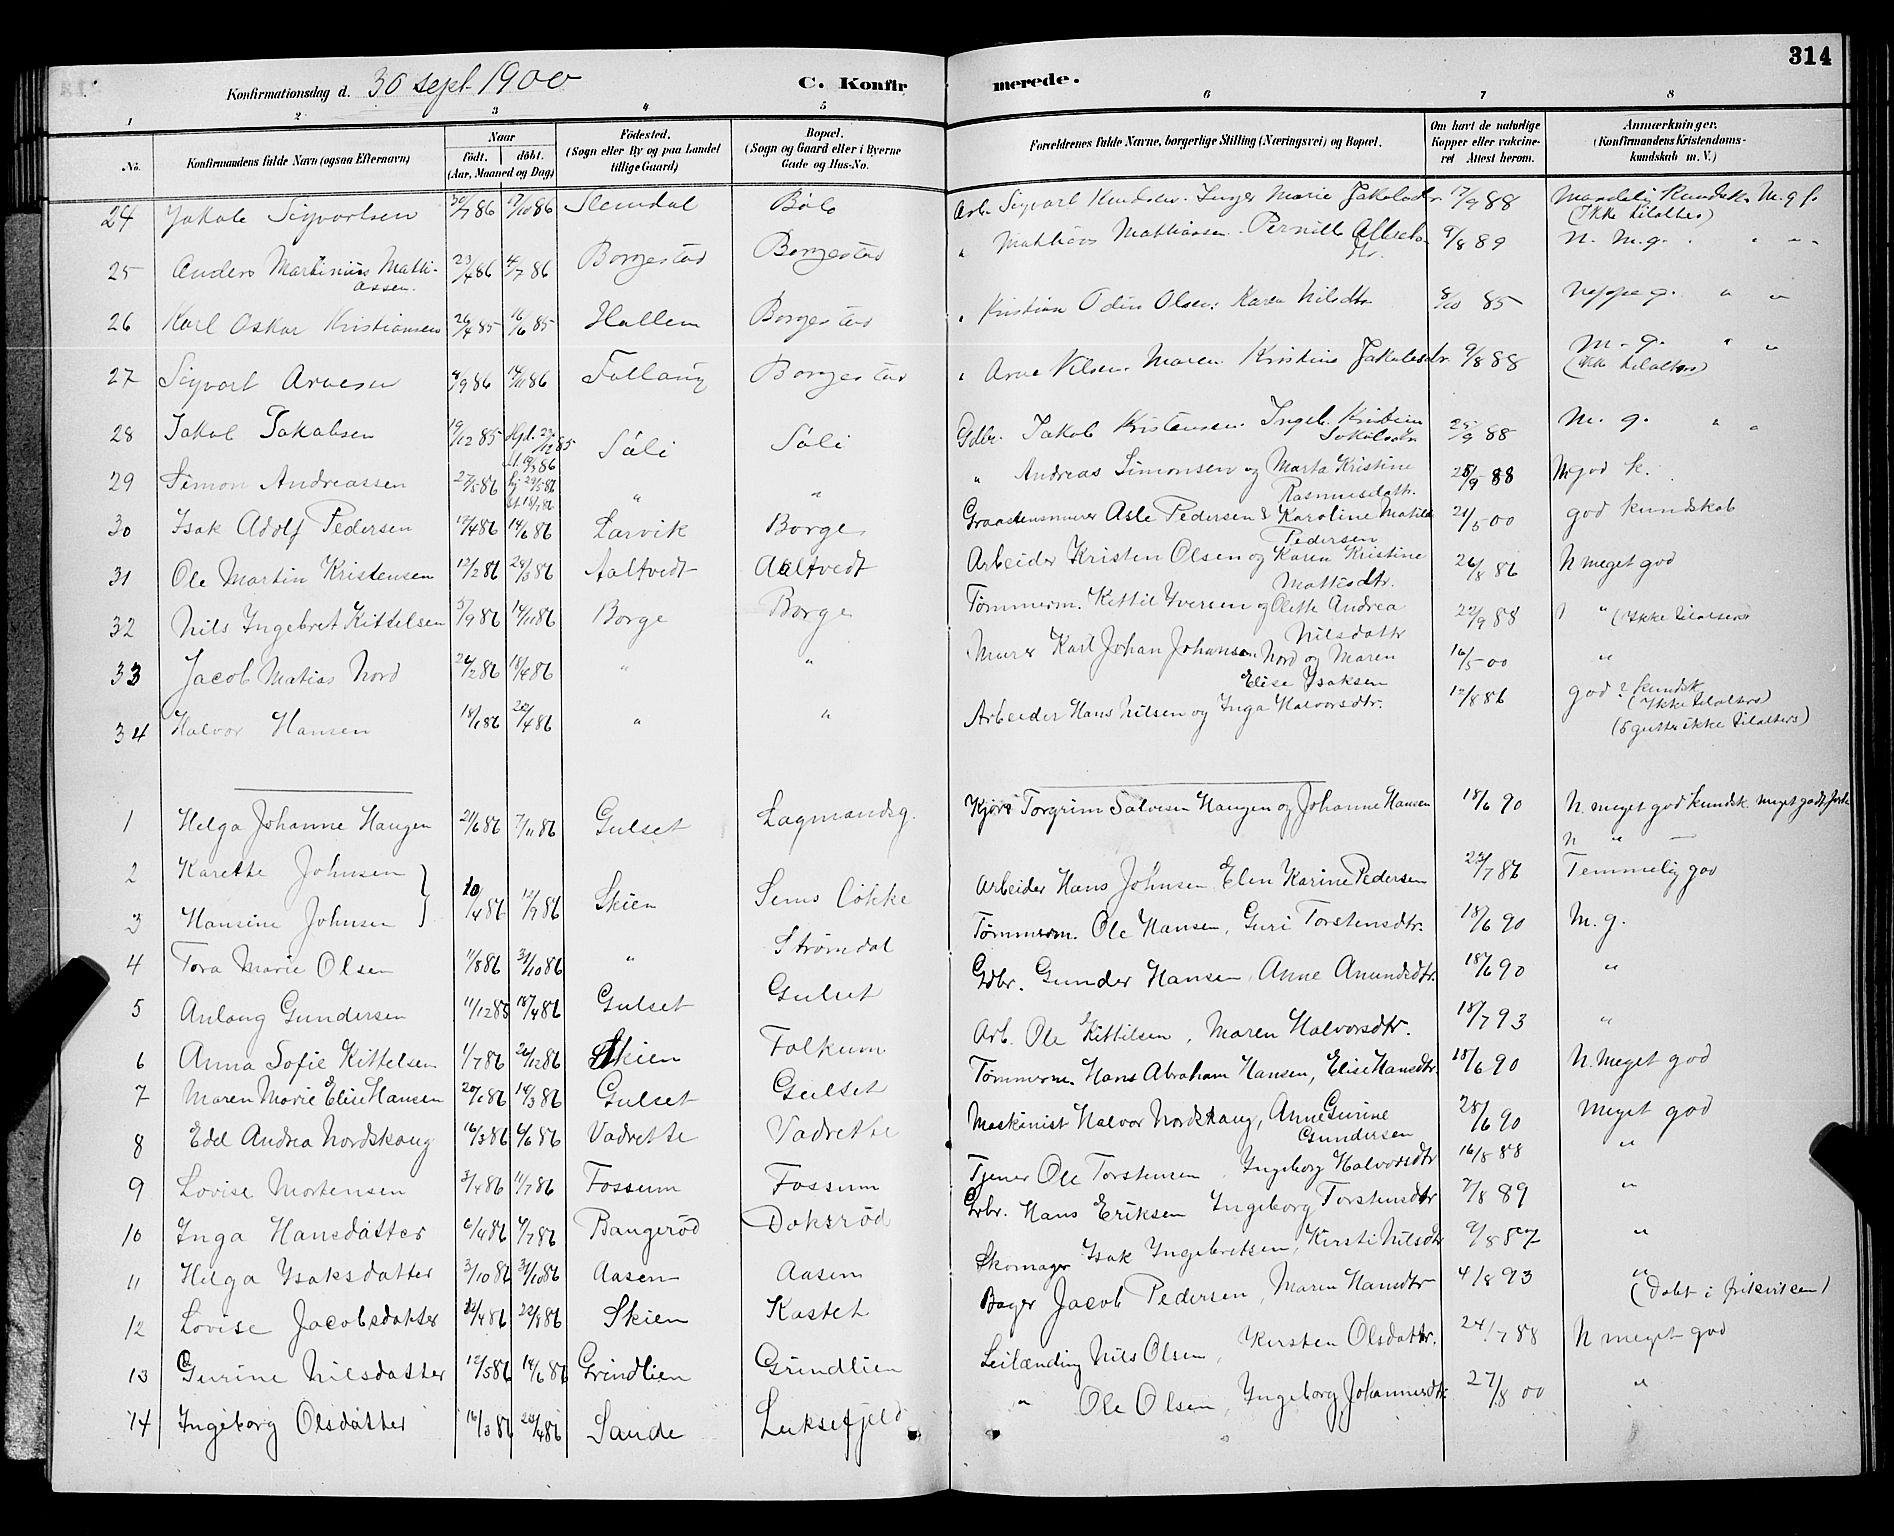 314
Konfirmationsdag d. 30 sept. 1900 C. Konfirmerede.
1 2 3 4 5 6 7 8
No. Konfirmandens fulde Navn (ogsaa Efternavn) Naar født. døbt. (Aar, Maaned og Dag) Fødested. (Sogn eller By og paa Landet tillige Gaard) Bopæl. (Sogn og Gaard eller i Byerne Gade og Hus-No. Forældrenes fulde Navne, borgerlige Stilling (Næringsvei) og Bopæl. Om havt de naturlige Kopper eller vakcineret Attest herom. Anmærkninger. (Konfirmandens Kristendomskundskab m. V.)
24 Jakob Sigvartsen 86 17/10 86 Slemdal Bøle Arb. Sigvart Knudsen. Inger Marie Jakobsdtr 17/9 88 Kundsk. M. g. f. (Ikke tilalters)
25 Anders Martinius Mattiassen. 23/4 86 86 Borgestad Borgestad " Mathias Mathiassen. Pernille 9/8 89 N. M. g. " "
26 Karl Oskar Kristiansen 26/4 85 16/6 85 Hallen Borgestad " Kristian Odin Olsen. Karen Nilsdtr 8/10 85 Neppe g. " "
27 Sigvart Arnesen /9 86 14/11 86 Follaug Borgestad " Arne Nilsen. Maren Kristine Jakobsdtr. 9/8 88 M. g. " " (ikke tilalters)
28 Jakob Jakobsen 19/12 85 Hjd. 27/12 85 Søli Søli Gdbr. Jakob Kristensen. Ingeb. Kristine 25/9 88 M. g. " "
29 Simon Andreassen 27/5 86 hj 29/5 86 st 18/7 86 " " " Andreas Simonsen og Marta Kristine Rasmusdattr. 25/9 88 M. god k.
30 Isak Adolf Pedersen 12/4 86 14/6 86 Larvik Borge Graastensmurer Asle Pedersen & Karoline Matilde Pedersen 21/5 00 god kundskab
31 Ole Martin Kristensen 12/2 86 28/3 86 Aaltvedt Aaltvedt Arbeider Kristen Olsen og Karen Kristine Mattisdtr. 26/8 86 N meget god
32 Nils Ingebret Kittelsen 5/9 86 14/11 86 Borge Borge Tømmerm. Kittil Iversen og Olette Andrea Nilsdattr 22/9 88 " (Ikke tilalters)
33 Jacob Matias Nord 26/2 86 18/4 86 " " Murer Karl Johan Johansen Nord og Maren Elise Ysaksen 16/5 00 "
34 Halvor Hansen 18/1 86 26/4 86 " " Arbeider Hans Nilsen og Inga Halvorsdtr. 12/8 86 god? kundsk (Ikke tilalters)
(5 gutter ikke tilalters)
1 Helga Johanne Haugen 21/6 86 7/11 86 Gulset Lagmandsg. Kjører Torgrim Salvesen Haugen og Johanne Hansen 18/6 90 N. meget god kundsk. meget godt forh.
2 Karethe Johnsen } N " —
3 Hansine Johnsen } 10/4 86 12/9 86 Skien Sems Løkke Arbeider Hans Johnsen, Elen Karine Pedersen 23/7 86 Temmelig god
4 Tora Marie Olsen 11/8 86 31/10 86 " Strømdal Tømmerm. Ole Hansen, Guri Torstensdtr. 18/6 90 M. g.
5 Anlaug Gundersen 11/12 85 18/4 86 Gulset Gulset Gdbr. Gunder Hansen, Anne Amundsdtr. 18/6 90 "
6 Anna Sofie Kittelsen 1/7 86 26/12 86 Skien Falkum Arb. Ole Kittilsen, Maren Halvorsdtr. 18/7 93 "
7 Maren Marie Elise Hansen 20/1 86 14/3 86 Gulset Gulset Tømmerm. Hans Abraham Hansen, Elise Hansdtr. 18/6 90 N. meget god
8 Edel Andrea Nordskaug 16/3 86 6/6 86 Vadrette Vadrette Maskinist Halvor Nordskaug, Anne Gurine Gundersen 28/6 90 meget god
9 Lovise Mortensen 3/4 86 11/7 86 Fossum Fossum Tjener Ole Torstensen, Ingeborg Halvorsdtr 16/8 88 "
10 Inga Hansdatter 6/4 86 4/7 86 Bangerød Doksrød Gdbr. Hans Eriksen Ingeborg Torstensdtr 7/8 89 "
11 Helga Ysaksdatter 3/10 86 31/10 86 Aasen Aasen Skomager Ysak Ingebretsen, Kirsti Nilsdtr 9/8 87 "
12 Lovise Jacobsdatter 22/4 86 22/8 86 Skien Kastet Bager Jacob Pedersen, Maren Hansdtr 4/8 93 " (Døbt i frikirken)
13 Gurine Nilsdatter 12/5 86 14/6 86 Grindlien Grindlien Leilænding Nils Olsen, Kirsten Olsdattr. 24/7 88 N meget god
14 Ingeborg Olsdatter 16/3 86 25/4 86 Sande Luksefjeld " Ole Olsen, Ingeborg Johannesdtr 27/8 00 "